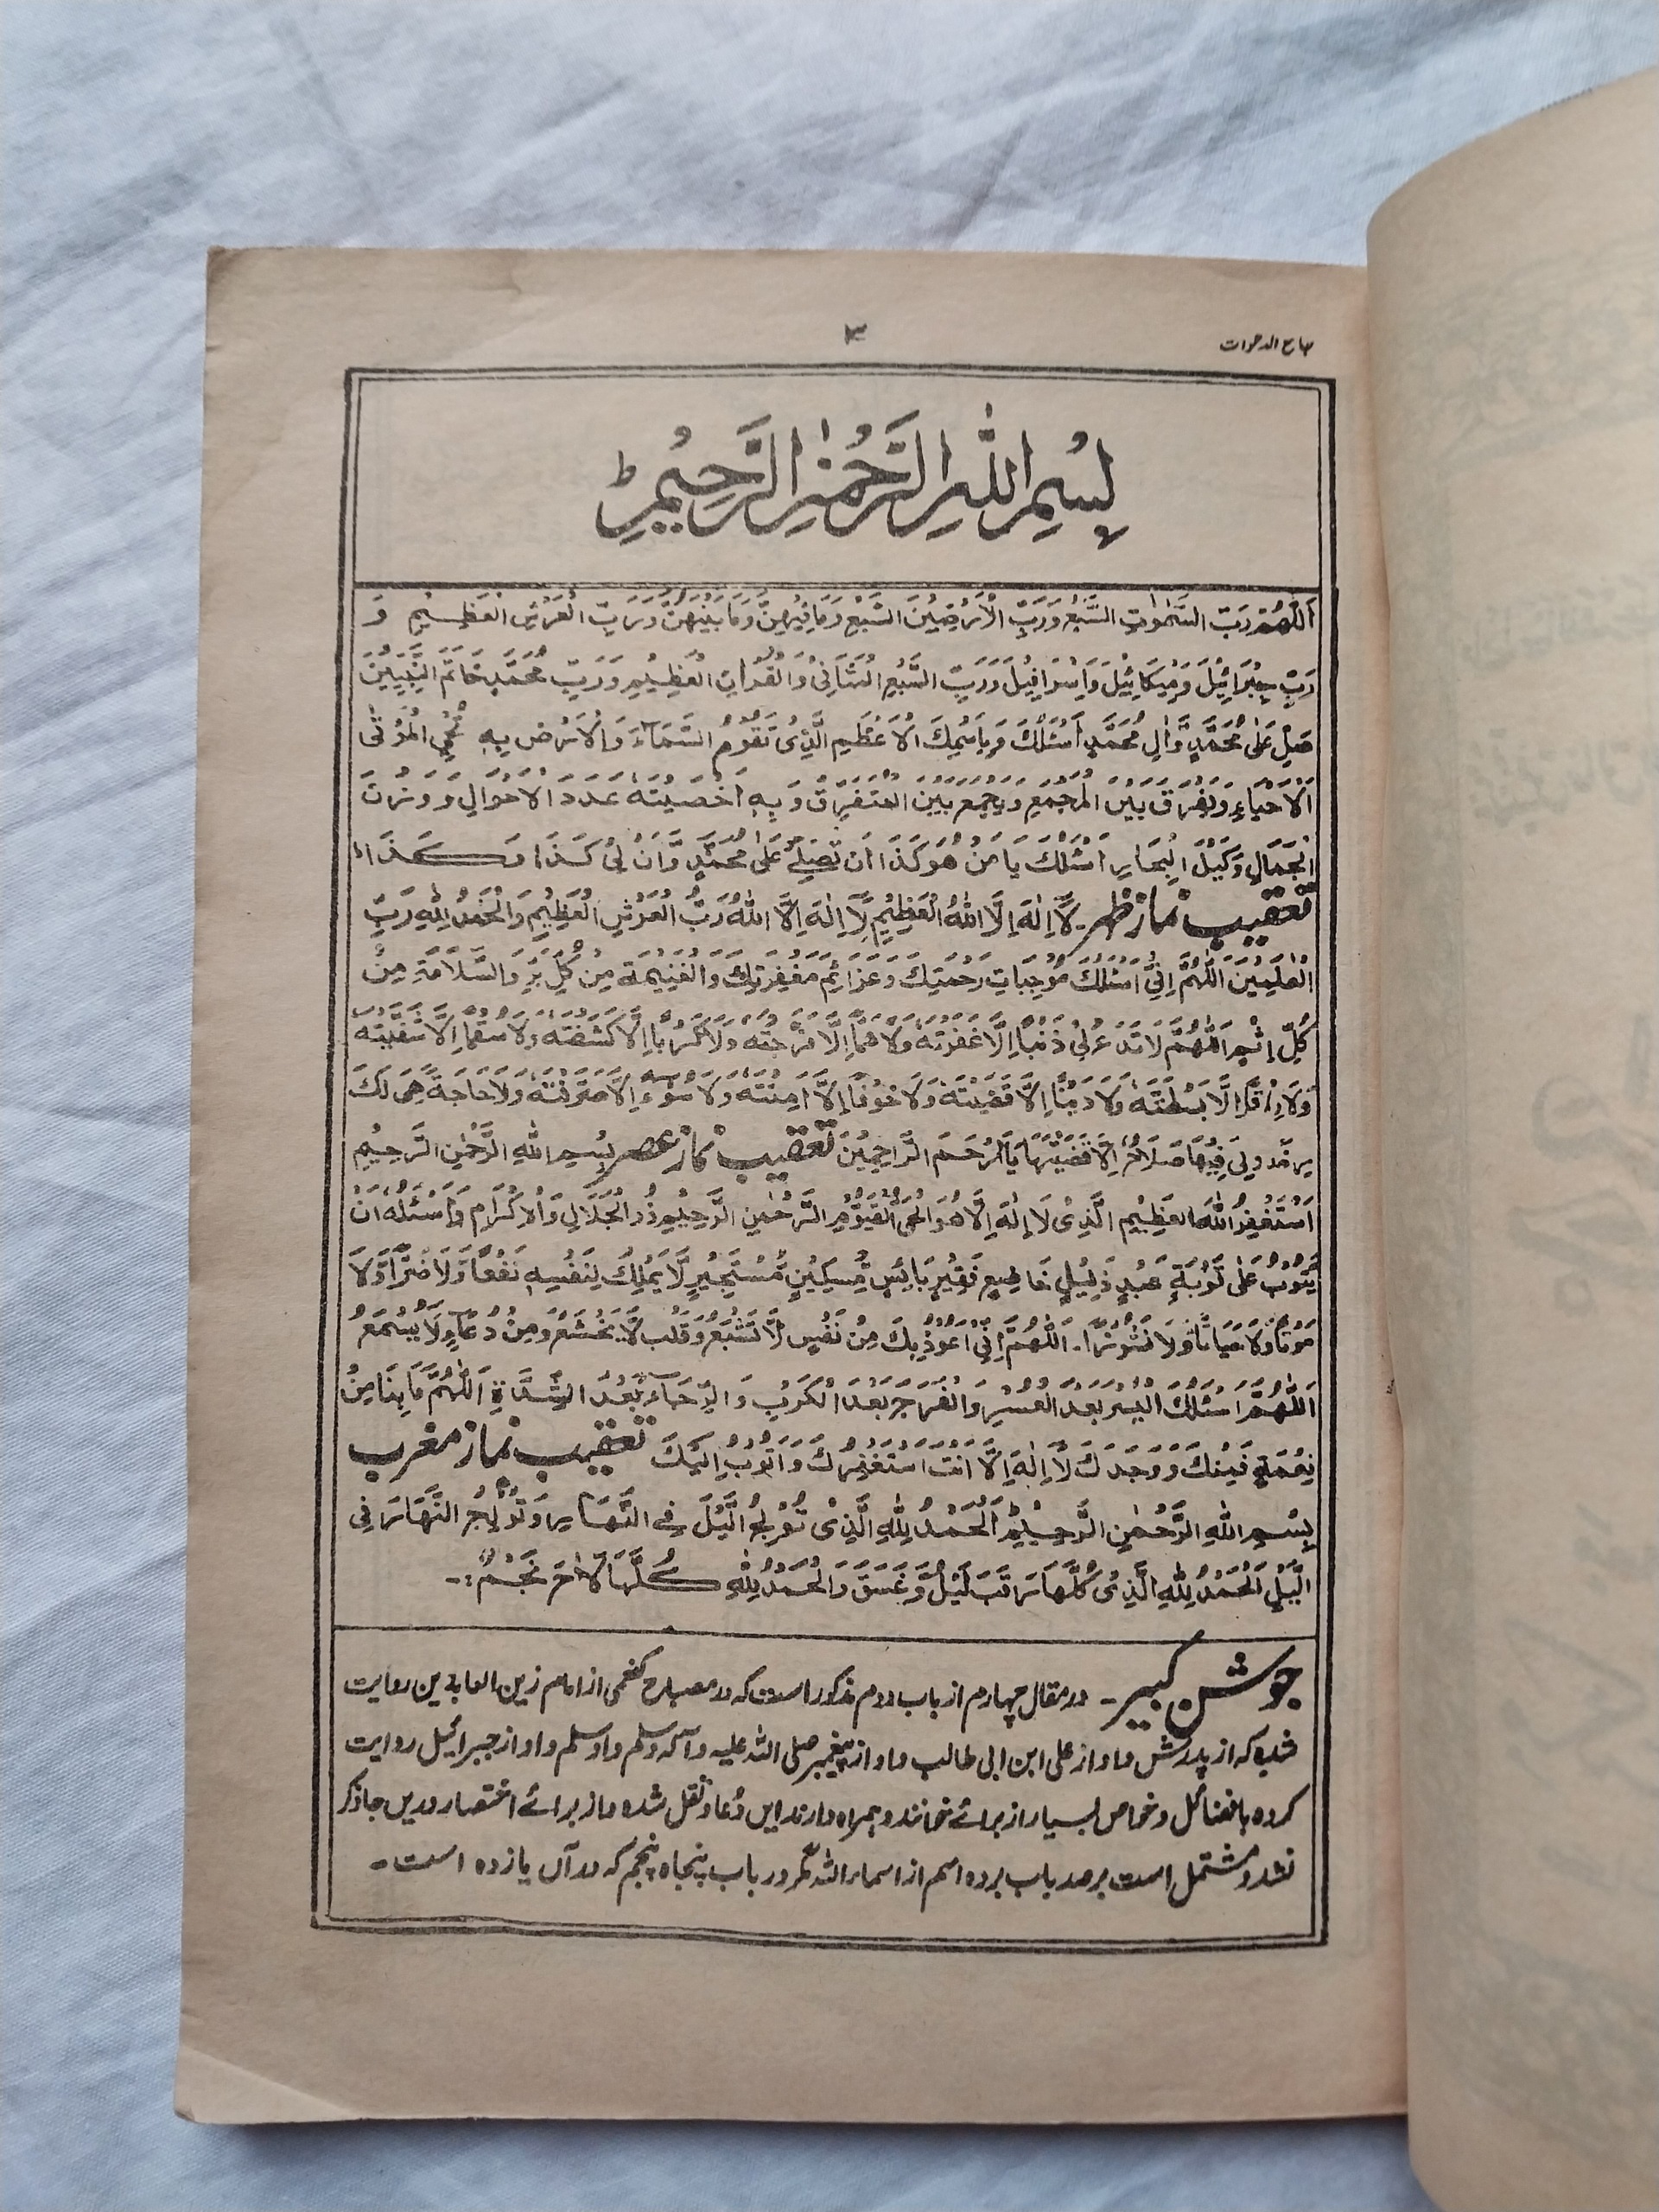 جامع الدعوات
۳
بِسْمِ اللّٰهِ الرَّحْمٰنِ الرَّحِيْمِ ط
اَللّٰهُمَّ رَبَّ السَّمٰوٰتِ السَّبْعِ وَرَبَّ الْاَرَضِيْنَ السَّبْعِ وَمَا فِيْهِنَّ وَمَا بَيْنَهُنَّ وَرَبَّ الْعَرْشِ الْعَظِيْمِ وَ
رَبَّ جِبْرَائِيْلَ وَمِيْكَائِيْلَ وَاِسْرَافِيْلَ وَرَبَّ السَّبْعِ الْمَثَانِيْ وَالْقُرْاٰنِ الْعَظِيْمِ وَرَبَّ مُحَمَّدٍ خَاتَمِ النَّبِيِّيْنَ
صَلِّ عَلٰى مُحَمَّدٍ وَّاٰلِ مُحَمَّدٍ اَسْئَلُكَ وَبِاسْمِكَ الْاَعْظَمِ الَّذِىْ تَقُوْمُ السَّمَآءَ وَالْاَرْضَ بِهٖ تُحْيِ الْمَوْتٰى
اَلْاَحْيَاءِ وَتُفَرِّقُ بَيْنَ الْمُجْمَعِ وَيَجْمَعُ بَيْنَ الْمُتَفَرِّقِ وَبِهٖ اَحْصَيْتَهٗ عَدَدَ الْاَحْوَالِ وَوَزْنَ
الْجَمَالِ وَكَيْلَ الْبِحَارِ اَسْئَلُكَ يَا مَنْ هُوَ كَذَا اَنْ تُصَلِّيَ عَلٰى مُحَمَّدٍ وَّاَنْ لِىْ كَذَا وَكَذَا
تعقیب نماز ظہر۔ لَآ اِلٰهَ اِلَّا اللّٰهُ الْعَظِيْمِ لَآ اِلٰهَ اِلَّا اللّٰهُ رَبُّ الْعَرْشِ الْعَظِيْمِ وَالْحَمْدُ لِلّٰهِ رَبِّ
الْعٰلَمِيْنَ اَللّٰهُمَّ اِنِّىْ اَسْئَلُكَ مُوْجِبَاتِ رَحْمَتِكَ وَعَزَائِمَ مَغْفِرَتِكَ وَالْغَنِيْمَةَ مِنْ كُلِّ بَرٍّ وَالسَّلَامَةَ مِنْ
كُلِّ اِثْمٍ اَللّٰهُمَّ لَا تَدَعْ لِىْ ذَنْبًا اِلَّا غَفَرْتَهٗ وَلَا هَمًّا اِلَّا فَرَّجْتَهٗ وَلَا كَرْبًا اِلَّا كَشَفْتَهٗ وَلَا سُقْمًا اِلَّا شَفَيْتَهٗ
وَلَا رِزْقًا اِلَّا بَسَطْتَهٗ وَلَا دَيْنًا اِلَّا قَضَيْتَهٗ وَلَا خَوْفًا اِلَّا اَمِنْتَهٗ وَلَا سُوْءً اِلَّا صَرَفْتَهٗ وَلَا حَاجَةً هِىَ لَكَ
وَلِيَ فِيْهَا صَلَاحٌ اِلَّا قَضَيْتَهَا يَا اَرْحَمَ الرَّاحِمِيْنَ تعقیب نماز عصر بِسْمِ اللّٰهِ الرَّحْمٰنِ الرَّحِيْمِ
اَسْتَغْفِرُ اللّٰهَ الْعَظِيْمِ الَّذِىْ لَا اِلٰهَ اِلَّا هُوَ الْحَىُّ الْقَيُّوْمُ الرَّحْمٰنِ الرَّحِيْمِ ذُو الْجَلَالِ وَالْاِكْرَامِ وَاَسْئَلُهٗ اَنْ
يَّتُوْبَ عَلٰى تَوْبَةِ عَبْدٍ ذَلِيْلٍ خَاضِعٍ فَقِيْرٍ بَائِسٍ مِّسْكِيْنٍ مُّسْتَجِيْرٍ لَّا يَمْلِكُ لِنَفْسِهٖ نَفْعًا وَّلَا ضَرًّا وَّلَا
مَوْتًا وَّلَا حَيَاتًا وَّلَا نُشُوْرًا۔ اَللّٰهُمَّ اِنِّىْ اَعُوْذُ بِكَ مِنْ نَفْسٍ لَّا تَشْبَعُ وَقَلْبٍ لَّا يَخْشَعُ وَمِنْ دُعَآءٍ لَا يُسْمَعُ
اَللّٰهُمَّ اَسْئَلُكَ الْيُسْرَ بَعْدَ الْعُسْرِ وَالْفَرَجَ بَعْدَ الْكَرْبِ وَالرَّخَآءَ بَعْدَ الشِّدَّةِ اَللّٰهُمَّ مَا بِنَا مِنْ
نِعْمَةٍ فَمِنْكَ وَوَحْدَكَ لَآ اِلٰهَ اِلَّا اَنْتَ اَسْتَغْفِرُكَ وَاَتُوْبُ اِلَيْكَ تعقیب نماز مغرب
بِسْمِ اللّٰهِ الرَّحْمٰنِ الرَّحِيْمِ اَلْحَمْدُ لِلّٰهِ الَّذِىْ تُوْلِجُ الَّيْلَ فِى النَّهَارِ وَتُوْلِجُ النَّهَارَ فِى
الَّيْلِ اَلْحَمْدُ لِلّٰهِ الَّذِىْ كُلَّمَا وَقَبَ لَيْلٌ وَّغَسَقَ وَالْحَمْدُ لِلّٰهِ كُلَّمَا لَاحَ نَجْمٌ
جوشن کبیر۔ در مقال چہارم از باب دوم مذکور است کہ در مصباح کفعمی از امام زین العابدین روایت
شدہ کہ از پدرش و او از علی ابن ابی طالب و او از پیغمبر صلی اللہ علیہ و آلہ وسلم و او از جبرائیل روایت
کردہ با فضائل و خواص بسیار از برائے خوانند و ہمراہ دارند این دُعا و نقل شدہ و از برائے اختصار دریں جا ذکر
نشد و مشتمل است بر صد باب بر دہ اسم از اسماء اللہ مگر در باب پنجاہ پنجم کہ در آں یازدہ است۔